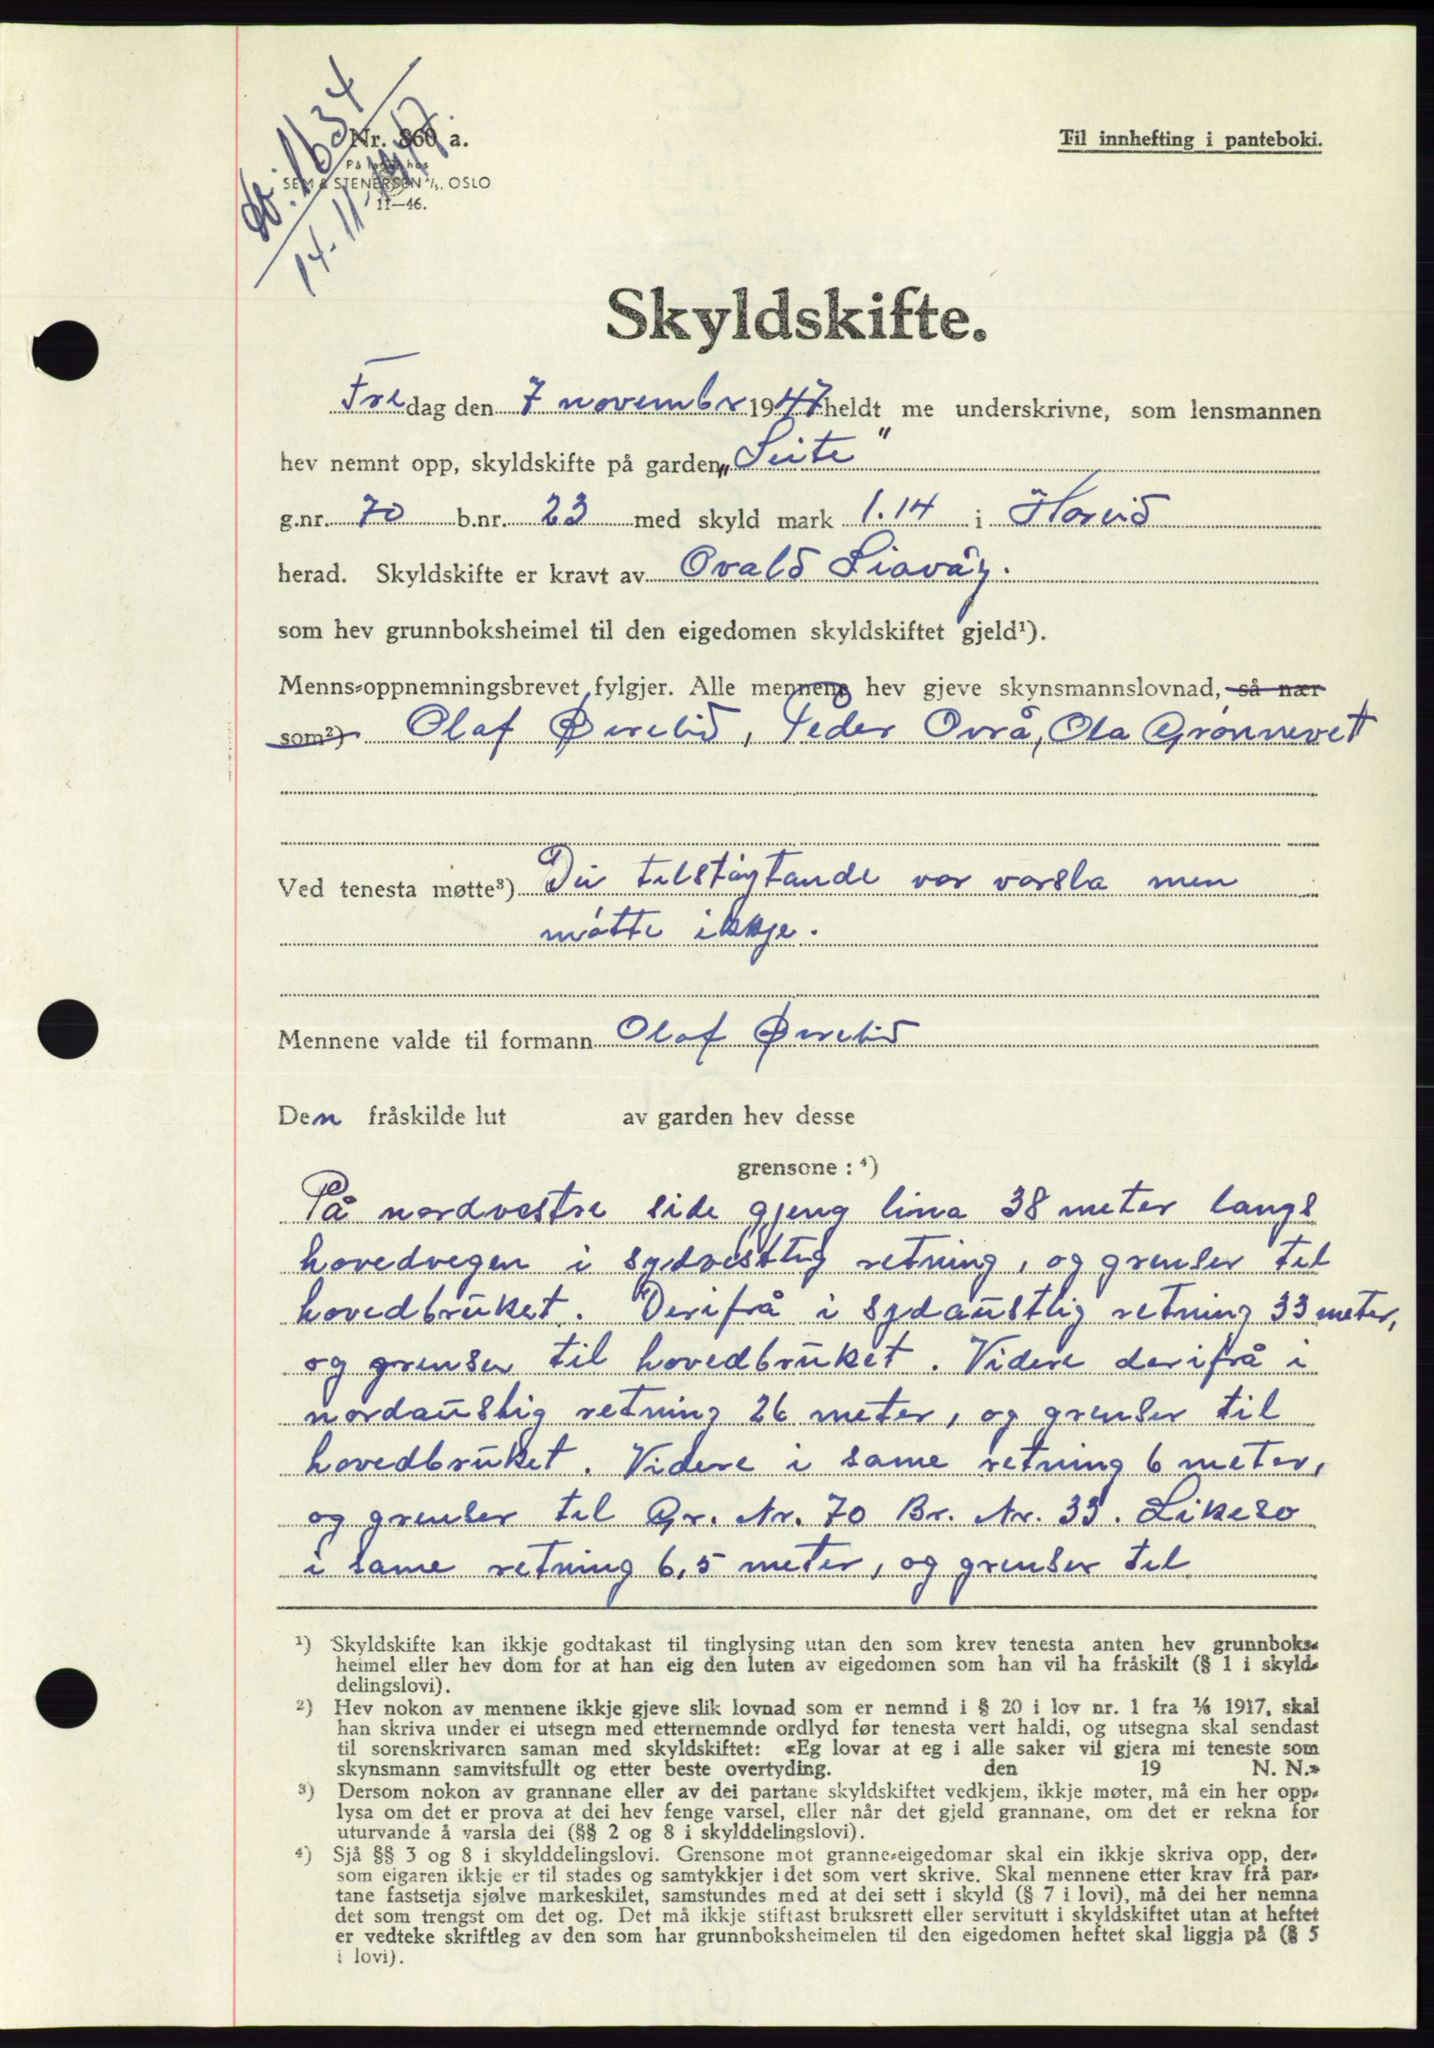 Db: 1634
14-11-1947.
Nr. 860 a.
På lager hos
SEM & STENERSEN A/S, OSLO
11—46.
Til innhefting i panteboki.
Skyldskifte.
Fredag den 7 novembr 1947 heldt me underskrivne, som lensmannen
hev nemnt opp, skyldskifte på garden „Leite"
g.nr. 70 b.nr. 23 med skyld mark 1.14 i Hareid
herad. Skyldskifte er kravt av Ovald Liavåg.
som hev grunnboksheimel til den eigedomen skyldskiftet gjeld¹).
Menns-oppnemningsbrevet fylgjer. Alle mennene hev gjeve skynsmannslovnad, så nær
som²) Olaf Øvrelid, Peder Ovrå, Ola Grønnevet
Ved tenesta møtte³) Dei tilstøytande var varsla men
møtte ikkje.
Mennene valde til formann Olaf Øvrelid
Den fråskilde lut av garden hev desse
grensone : ⁴)
På nordvestre side gjeng lina 38 meter langs
hovedvegen i sydvestlig retning, og grenser til
hovedbruket. Derifrå i sydaustlig retning 33 meter,
og grenser til hovedbruket. Videre derifrå i
nordaustlig retning 26 meter, og grenser til
hovedbruket. Videre i same retning 6 meter,
og grenser til Gr. Nr. 70 Br. Nr. 33. Likeso
i same retning 6,5 meter, og grenser til
¹) Skyldskifte kan ikkje godtakast til tinglysing utan den som krev tenesta anten hev grunnboks-
heimel eller hev dom for at han eig den luten av eigedomen som han vil ha fråskilt (§ 1 i skyld-
delingslovi).
²) Hev nokon av mennene ikkje gjeve slik lovnad som er nemnd i § 20 i lov nr. 1 fra ⅛ 1917, skal
han skriva under ei utsegn med etternemnde ordlyd før tenesta vert haldi, og utsegna skal sendast
til sorenskrivaren saman med skyldskiftet: «Eg lovar at eg i alle saker vil gjera mi teneste som
skynsmann samvitsfullt og etter beste overtyding. den 19 N. N.»
³) Dersom nokon av grannane eller av dei partane skyldskiftet vedkjem, ikkje møter, må ein her opp-
lysa om det er prova at dei hev fenge varsel, eller når det gjeld grannane, om det er rekna for
uturvande å varsla dei (§§ 2 og 8 i skylddelingslovi).
⁴) Sjå §§ 3 og 8 i skylddelingslovi. Grensone mot granne-eigedomar skal ein ikkje skriva opp, der-
som eigaren ikkje er til stades og samtykkjer i det som vert skrive. Skal mennene etter krav frå par-
tane fastsetja sjølve markeskilet, samstundes med at dei sett i skyld (§ 7 i lovi), må dei her nemna
det som trengst om det og. Det må ikkje stiftast bruksrett eller servitutt i skyldskiftet utan at heftet
er vedteke skriftleg av den som har grunnboksheimelen til den eigedomen heftet skal liggja på (§ 5
i lovi).